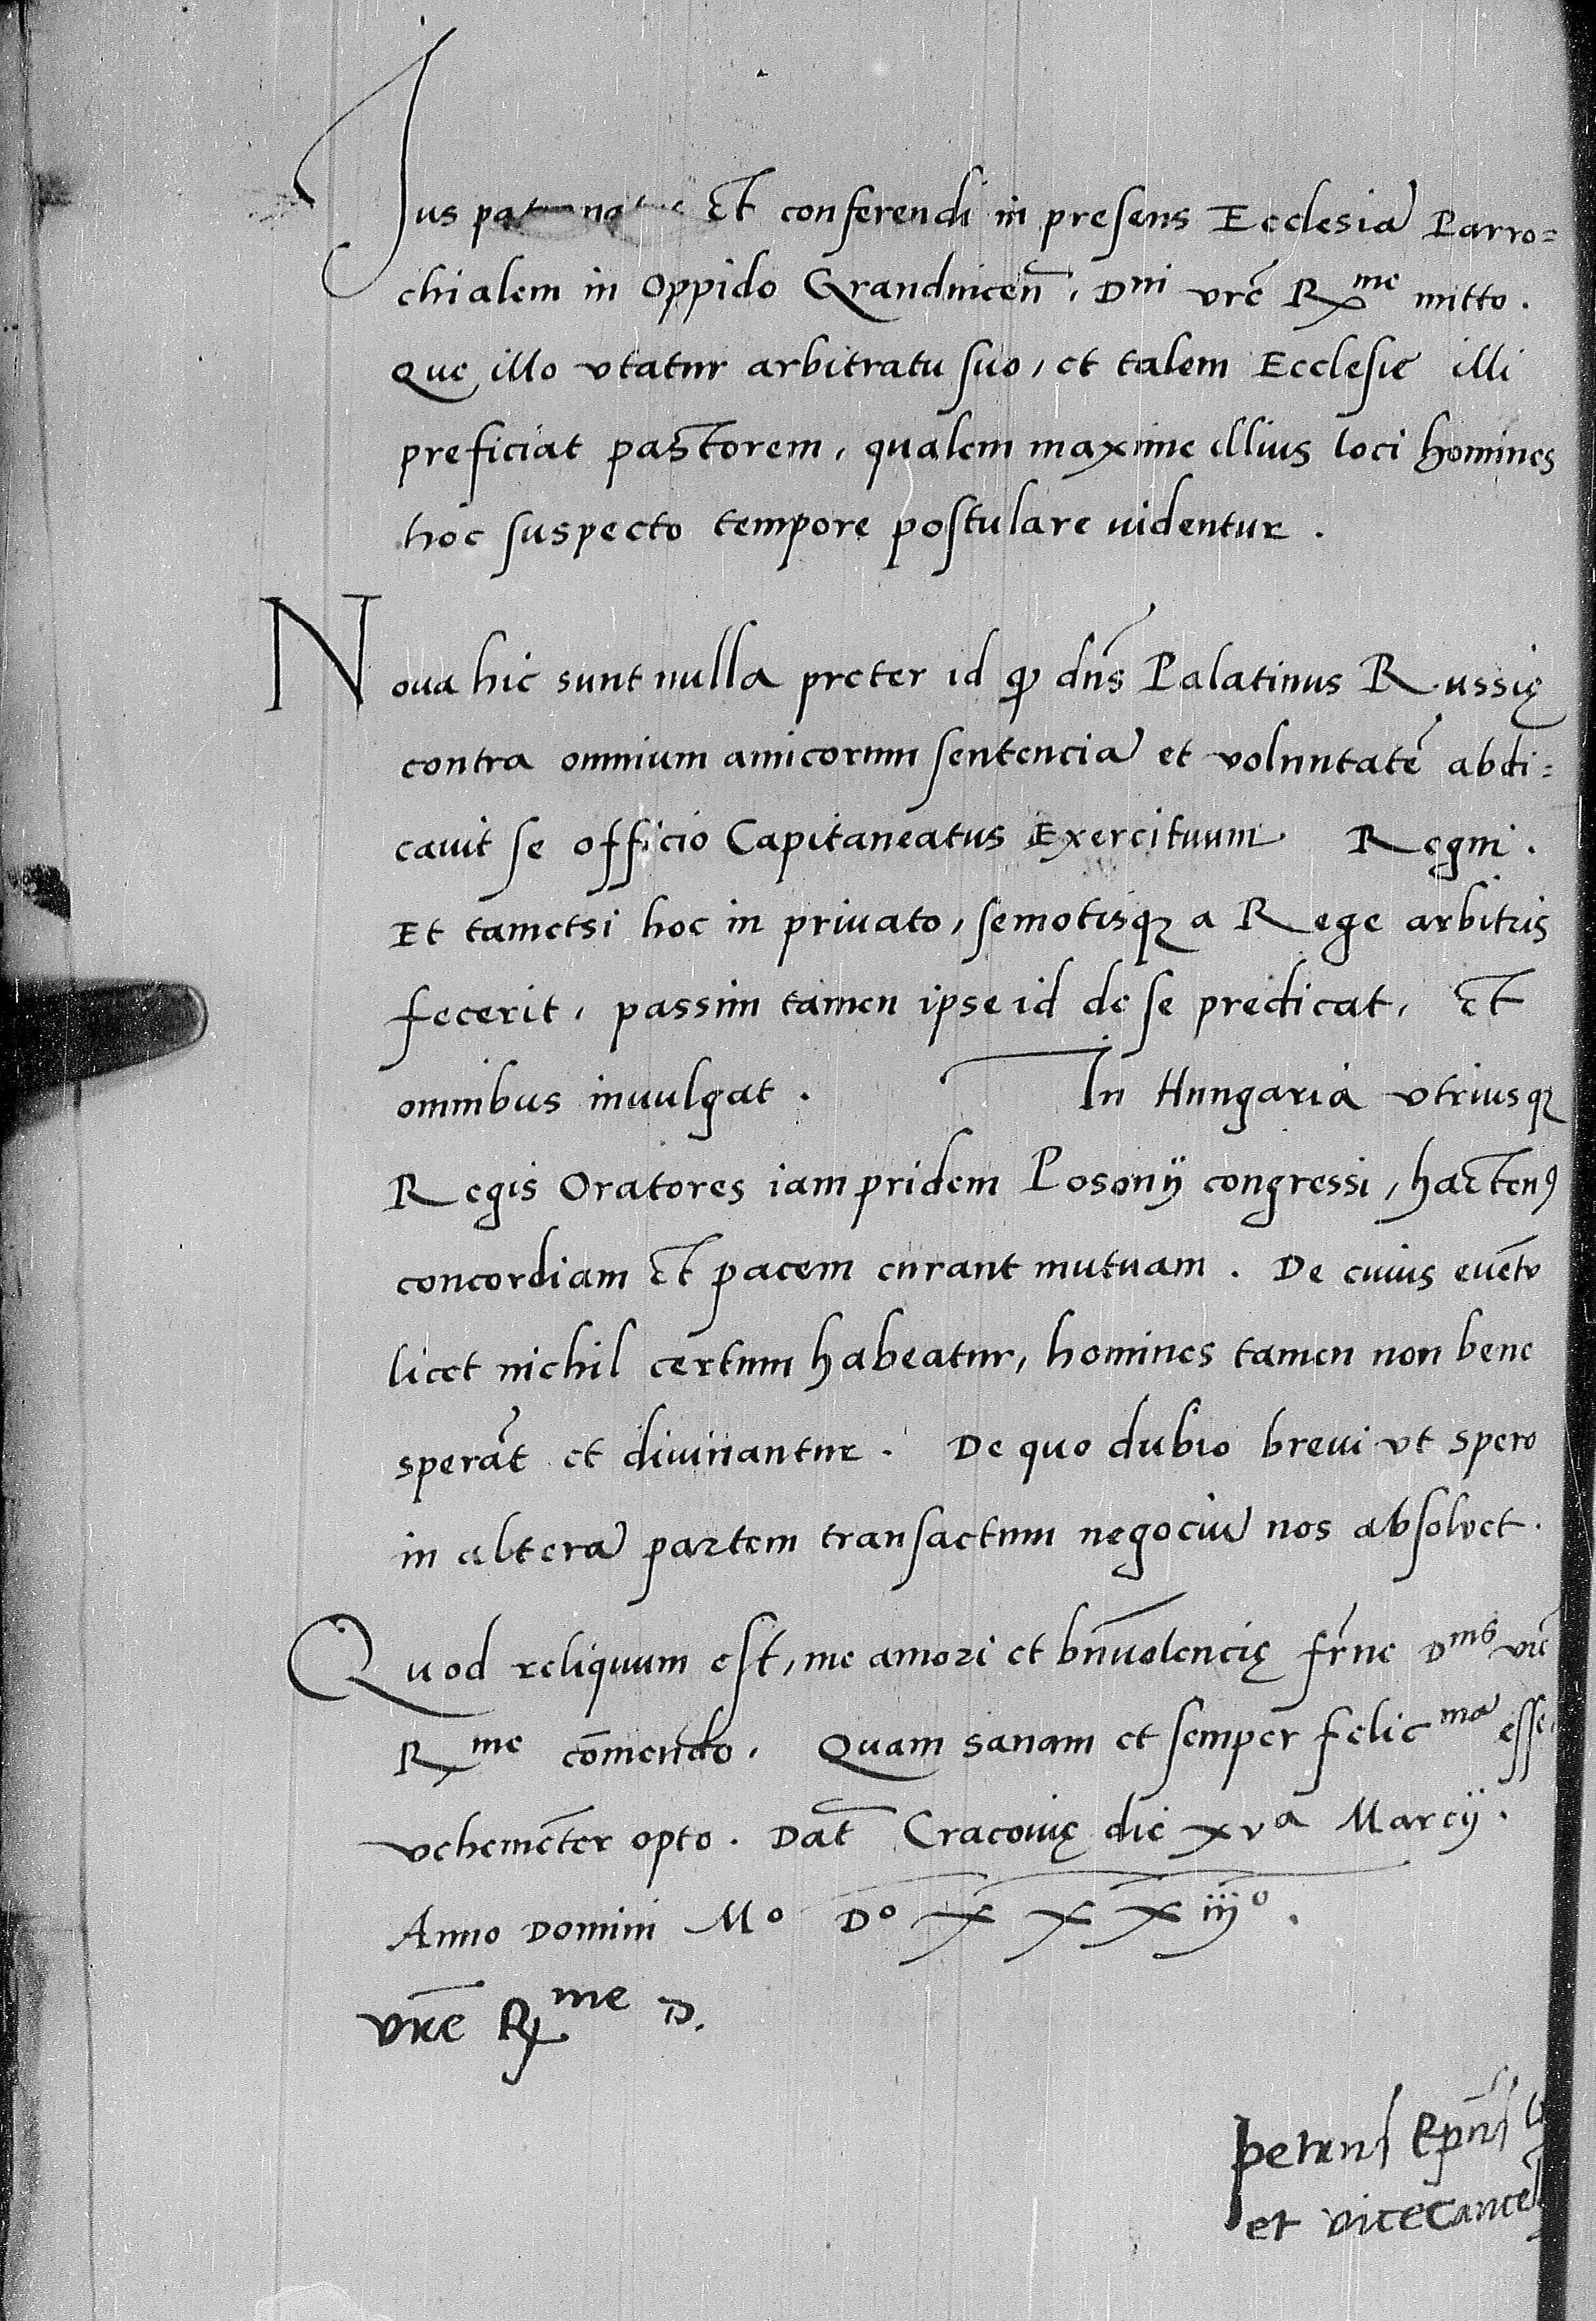 Ius patronatus et conferendi in presens Ecclesiā Parro=
chialem in Oppido Grandnicen̄, Dni vrē Rme mitto.
Que illo vtatur arbitratu suo, et talem Ecclesie illi
preficiat pastorem, qualem maxime illius loci homines
hoc suspecto tempore postulare uidentur.
Noua hic sunt nulla preter id qɔ dn̄s Palatinus Russię
contra omnium amicorum sentenciā et voluntatē abdi=
cauit se officio Capitaneatus Exercituum Regni.
Et tametsi hoc in priuato, semotisqꝫ a Rege arbitris
fecerit, passim tamen ipse id de se predicat, et
omnibus inuulgat. In Hungaria vtriusqꝫ
Regis Oratores iam pridem Posonij congressi, hacten9
concordiam et pacem curant mutuam. De cuius euētu
licet nichil certum habeatur, homines tamen non bene
sperāt et diuinantur. De quo dubio breui vt spero
in alterā partem transactum negociū nos absoluet.
Quod reliquum est, me amori et bn̄uolencię fr̄ne Dnis vrē
Rme cōmendo. Quam sanam et semper felicmā esse,
vehemēter opto. Dat̄ Cracouię die xva Marcij.
Anno Domini Mo Do XXXiijo.
vrē Rme D.
petrus Ep̄us
et vicecancel